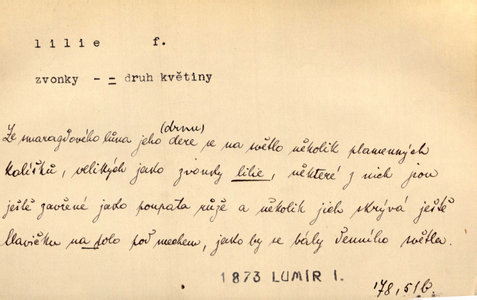 lilie f.
zvonky - = druh květiny
(drnu)
Ze smaragdového lůna jeho dere se na světlo několik plamenných
kalíšků, velikých jako zvonky lilie, některé z nich jsou
ještě zavřené jako poupata růže a několik jich skrývá ještě
hlavičku na polo pod mechem, jako by se bály denního světla.
1873 LUMÍR I.
178, 5/b.